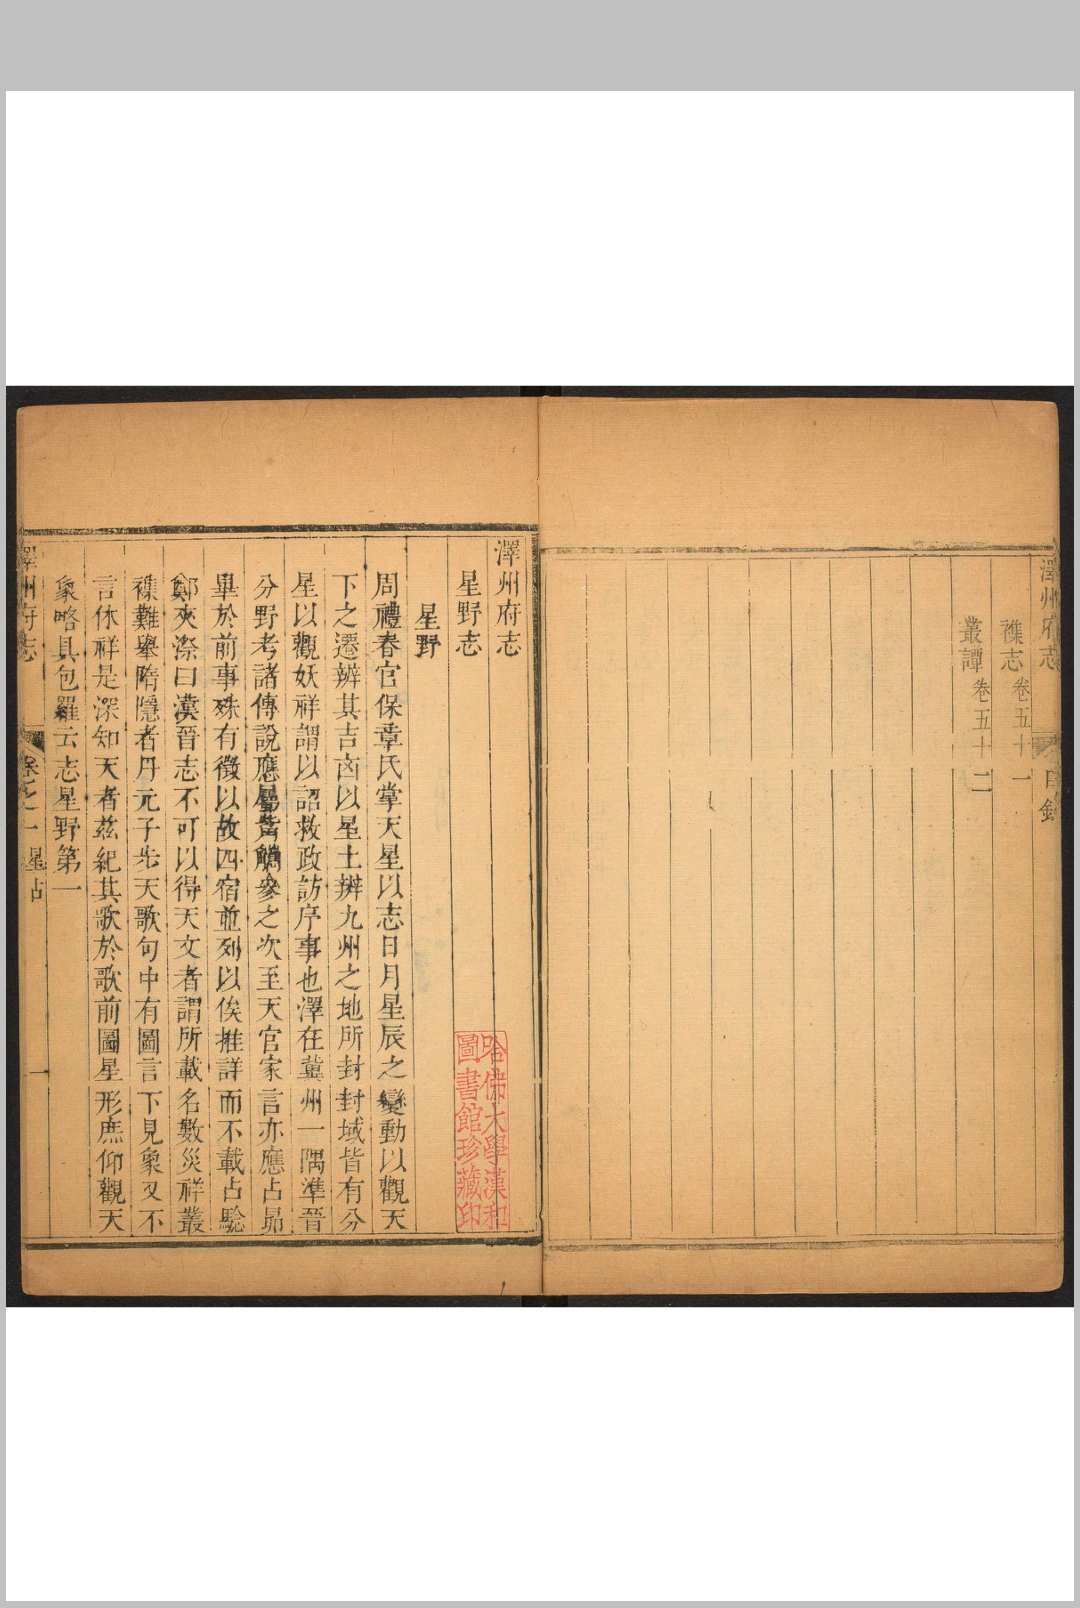 澤州府志
目錄
襍志卷五十一
叢譚卷五十二
澤州府志
星野志
星野
周禮春官保章氏掌天星以志日月星辰之變動以觀天
下之遷辨其吉凶以星土辨九州之地所封封域皆有分
星以觀妖祥謂以詔救政訪序事也澤在冀州一隅準晉
分野考諸傳說應屬觜觿參之次至天官家言亦應占昴
畢於前事殊有徵以故四宿並列以俟推詳而不載占驗
鄭夾漈曰漢晉志不可以得天文者謂所載名數災祥叢
襍難舉隋隱者丹元子步天歌句中有圖言下見象又不
言休祥是深知天者茲紀其歌於歌前圖星形庶仰觀天
象略具包羅云志星野第一
澤州府志
卷之一
星占
一
哈佛大學漢和
圖書館珍藏印